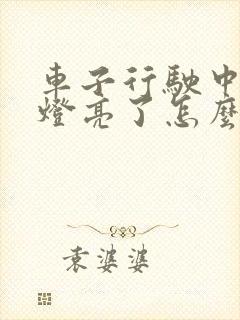 車子行駛中
燈亮了怎麼
袁婆婆